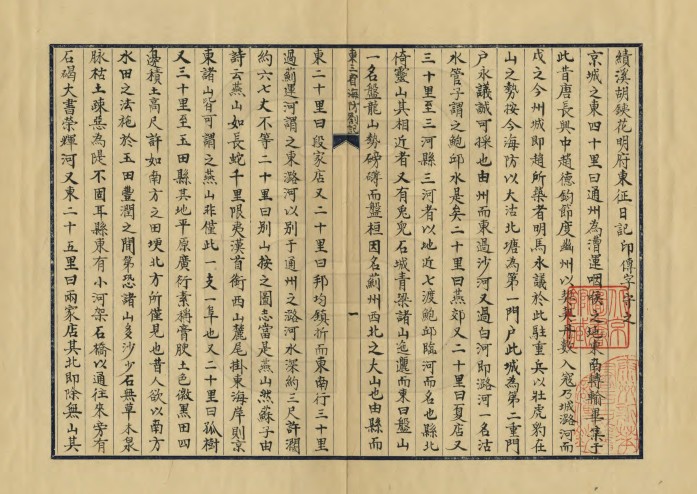 績溪胡鐵花明府東征日記印傳字守之
京城之東四十里曰通州為漕運咽喉之地東南轉輸畢集于
此昔唐長興中趙德鈞節度幽州以契丹數入寇乃城潞河而
戍之今州城即趙所築者明馬永議於此駐重兵以壮虎豹在
山之勢按今海防以大沽北塘為第一門户此城為第二重門
户永議誠可採也由州而東過沙河又過白河即潞河一名沽
水管子謂之鮑邱水是矣二十里曰燕郊又二十里曰夏店又
三十里至三河縣三河者以地近七渡鮑邱臨河而名也縣北
倚靈山其相近者又有兎兒石城青梁諸山迤邐而東曰盤山
一名盤龍山勢磅礡而盤桓因名薊州西北之大山也由縣而
東三省海防劄記
一
東二十里曰段家店又二十里曰邦均鎮折而東南行三十里
過薊運河謂之東潞河以别于通州之潞河水深約三尺許濶
約六七丈不等二十里曰别山按之圖志當是燕山然蘇子由
詩云燕山如長蛇千里限夷漢首銜西山麓尾掛東海岸則京
東諸山皆可謂之燕山非僅此一支一阜也又二十里曰孤樹
又三十里至玉田縣其地平原廣衍素稱膏腴土色微黒田四
邊積土高尺許如南方之田埂北方所僅見也昔人欲以南方
水田之法施於玉田豐潤之間第恐諸山多沙少石無草木泉
脉枯土疎惡為隄不固耳縣東有小河架石橋以通往來旁有
石碣大書榮輝河又東二十五里曰兩家店其北即除無山其